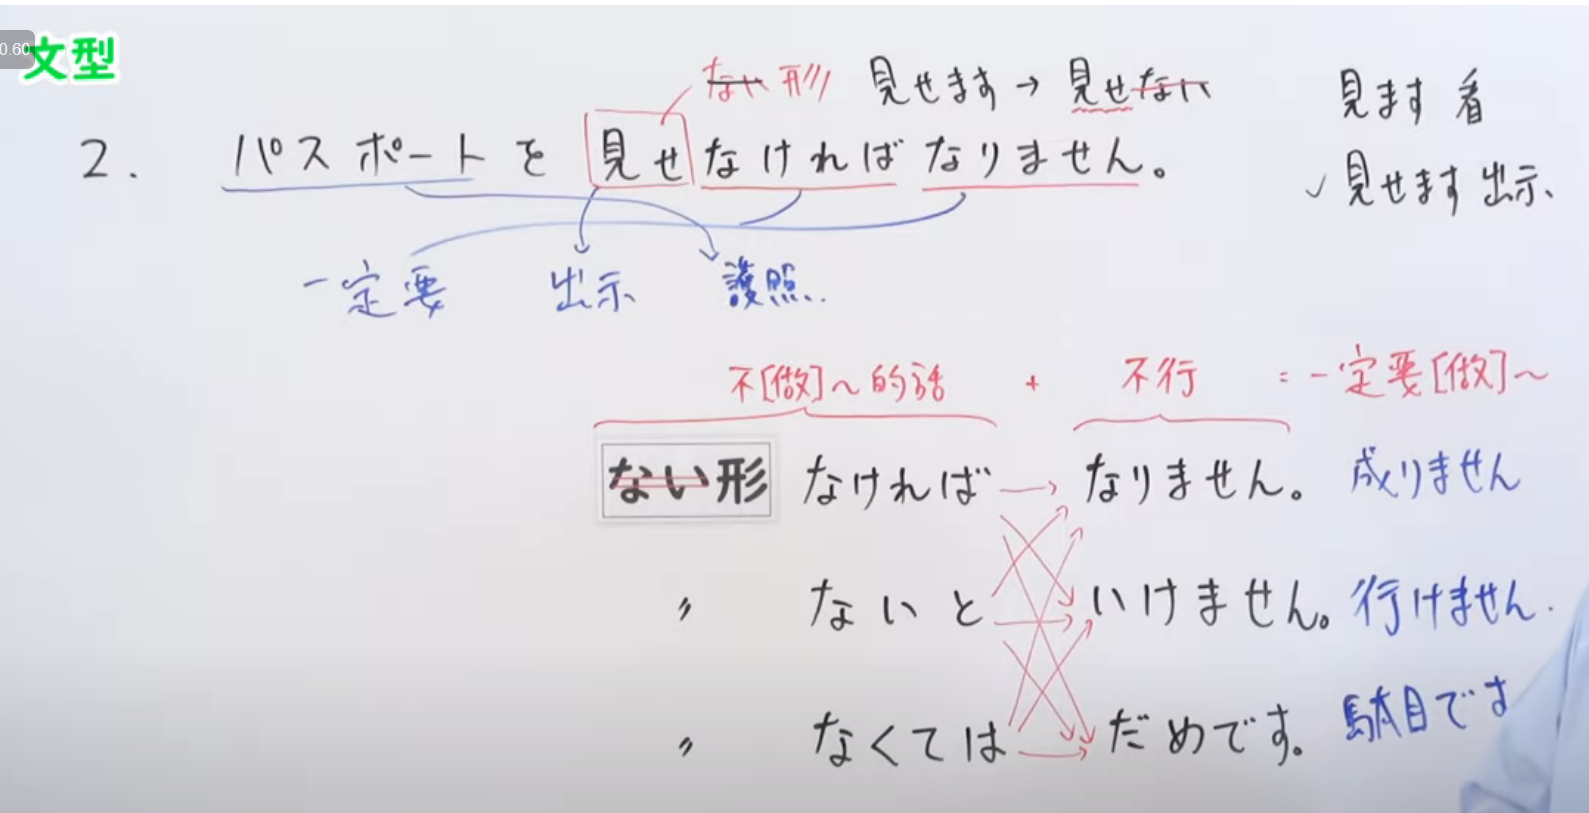 0.60
文型
ない形 見せます→見せない 見ます 看
2. パスポートを見せなければなりません。 ✓見せます 出示、
一定要 出示 護照.
不[做]～的話 + 不行 = 一定要[做]～
ない形 なければ → なりません。 成りません
〃 ないと いけません。 行けません.
〃 なくては だめです。 駄目です